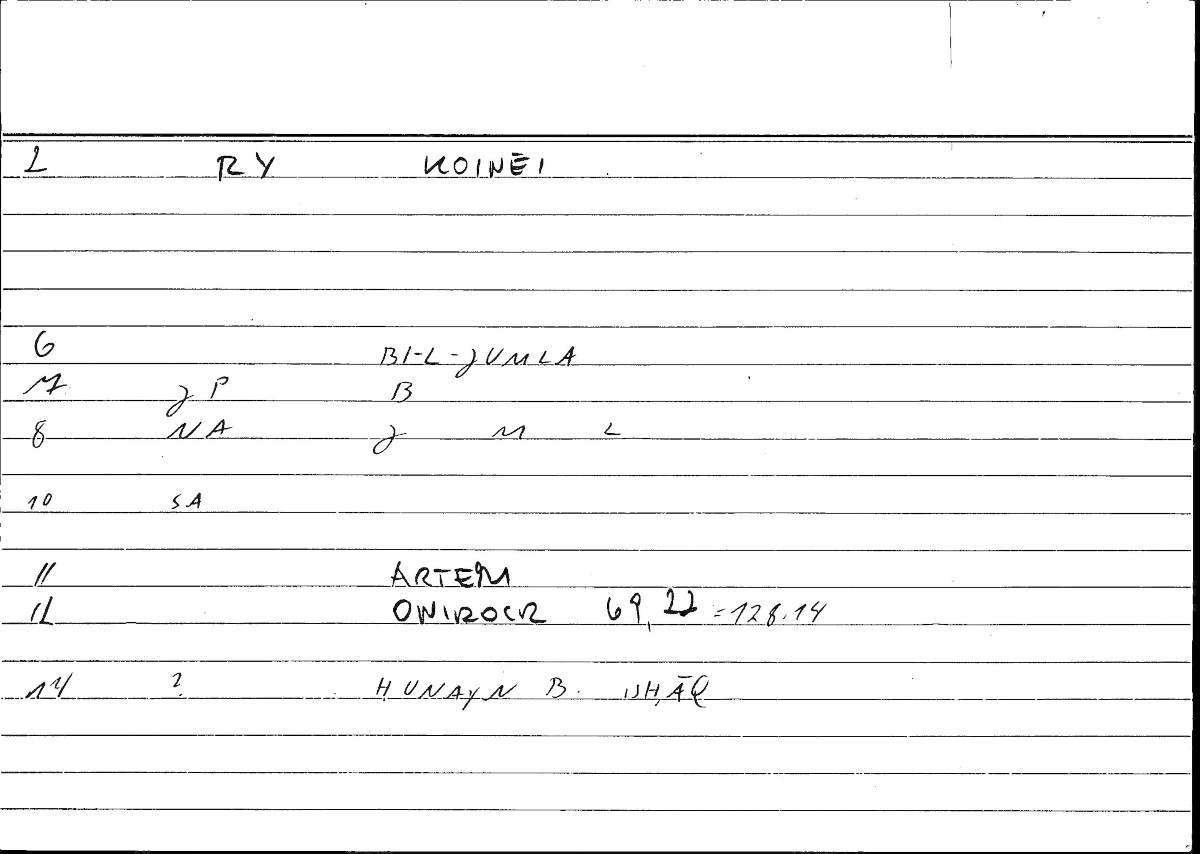 2 RY KOINĒI
6 BI-L-JUMLA
7 JP B
8 NA J M L
10 SA
11 ARTEM
12 ONIROCR 69,22 = 128.14
14 ? ḤUNAYN B. ISḤĀQ